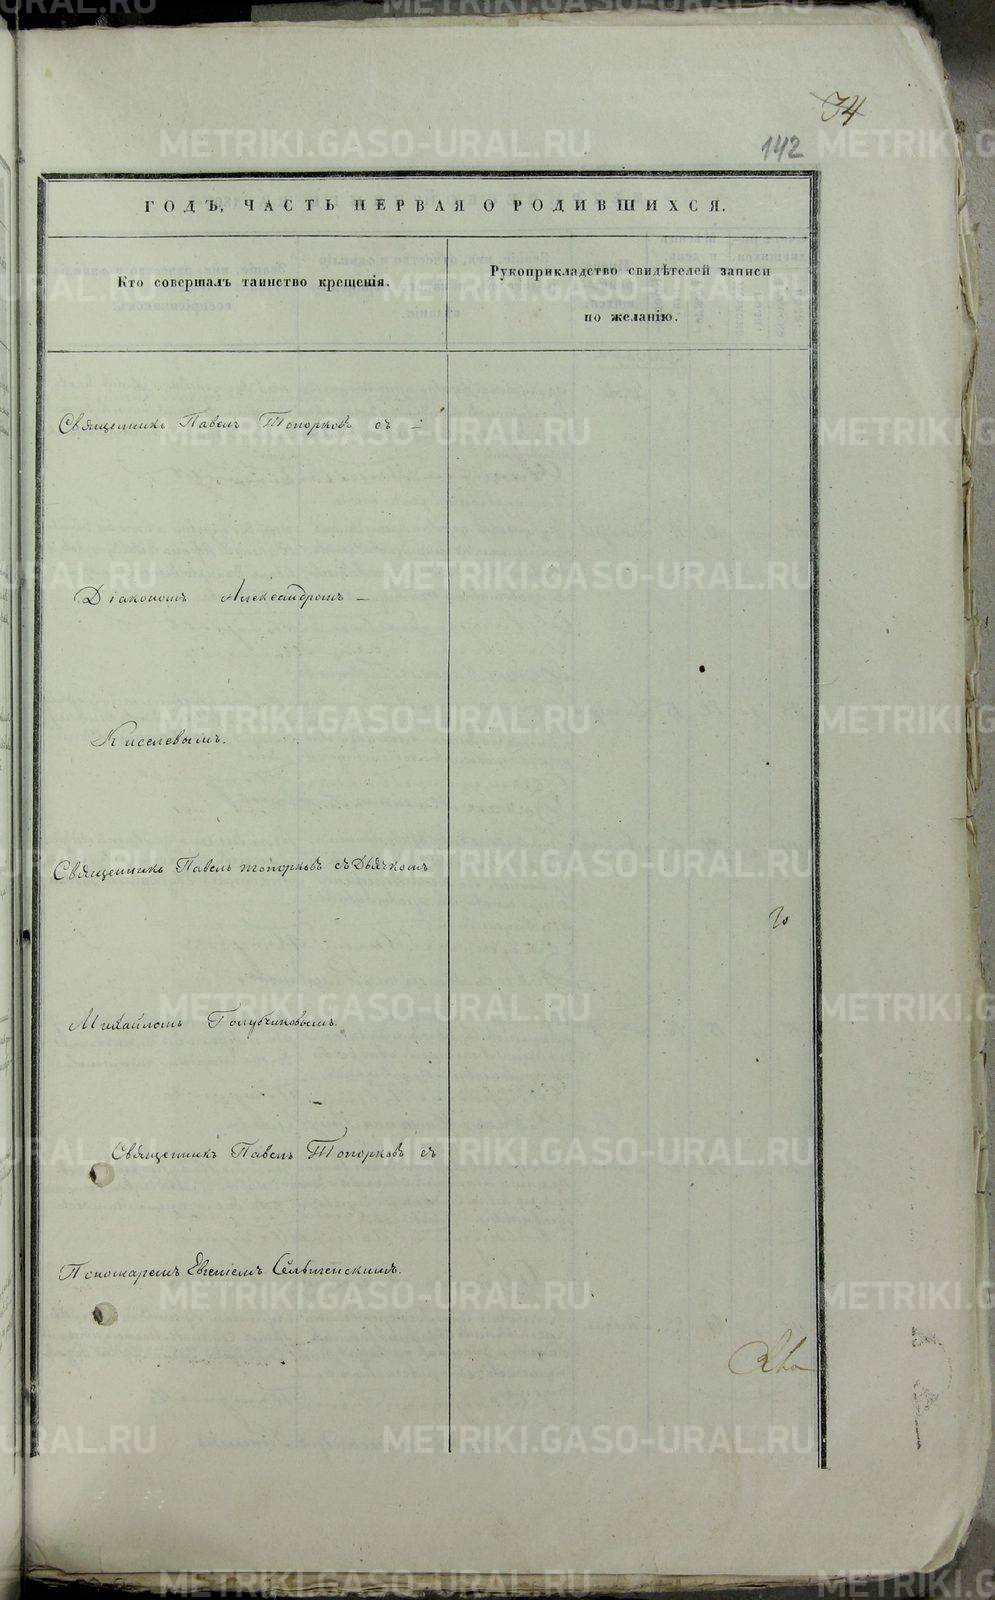 74
142
ГОДЪ, ЧАСТЬ ПЕРВАЯ О РОДИВШИХСЯ.
Кто совершалъ таинство крещенія.
Рукоприкладство свидѣтелей записи
по желанію.
Священникъ Павелъ Топорковъ съ
Діакономъ Александромъ
Киселевымъ.
Священникъ Павелъ Топорковъ съ Дьячкомъ
Михайломъ Голубчиковымъ.
Священникъ Павелъ Топорковъ съ
Пономаремъ Евгеніемъ
METRIKI.GASO-URAL.RU